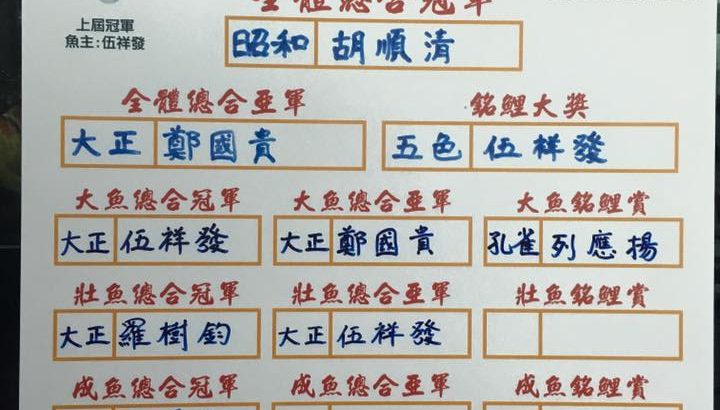 全體總合冠軍
上屆冠軍
魚主:伍祥發
昭和 胡順清
全體總合亞軍 銘鯉大獎
大正 鄭國貴 五色 伍祥發
大魚總合冠軍 大魚總合亞軍 大魚銘鯉賞
大正 伍祥發 大正 鄭國貴 孔雀 列應揚
壯魚總合冠軍 壯魚總合亞軍 壯魚銘鯉賞
大正 羅樹鈞 大正 伍祥發
成魚總合冠軍 成魚總合亞軍 成魚銘鯉賞